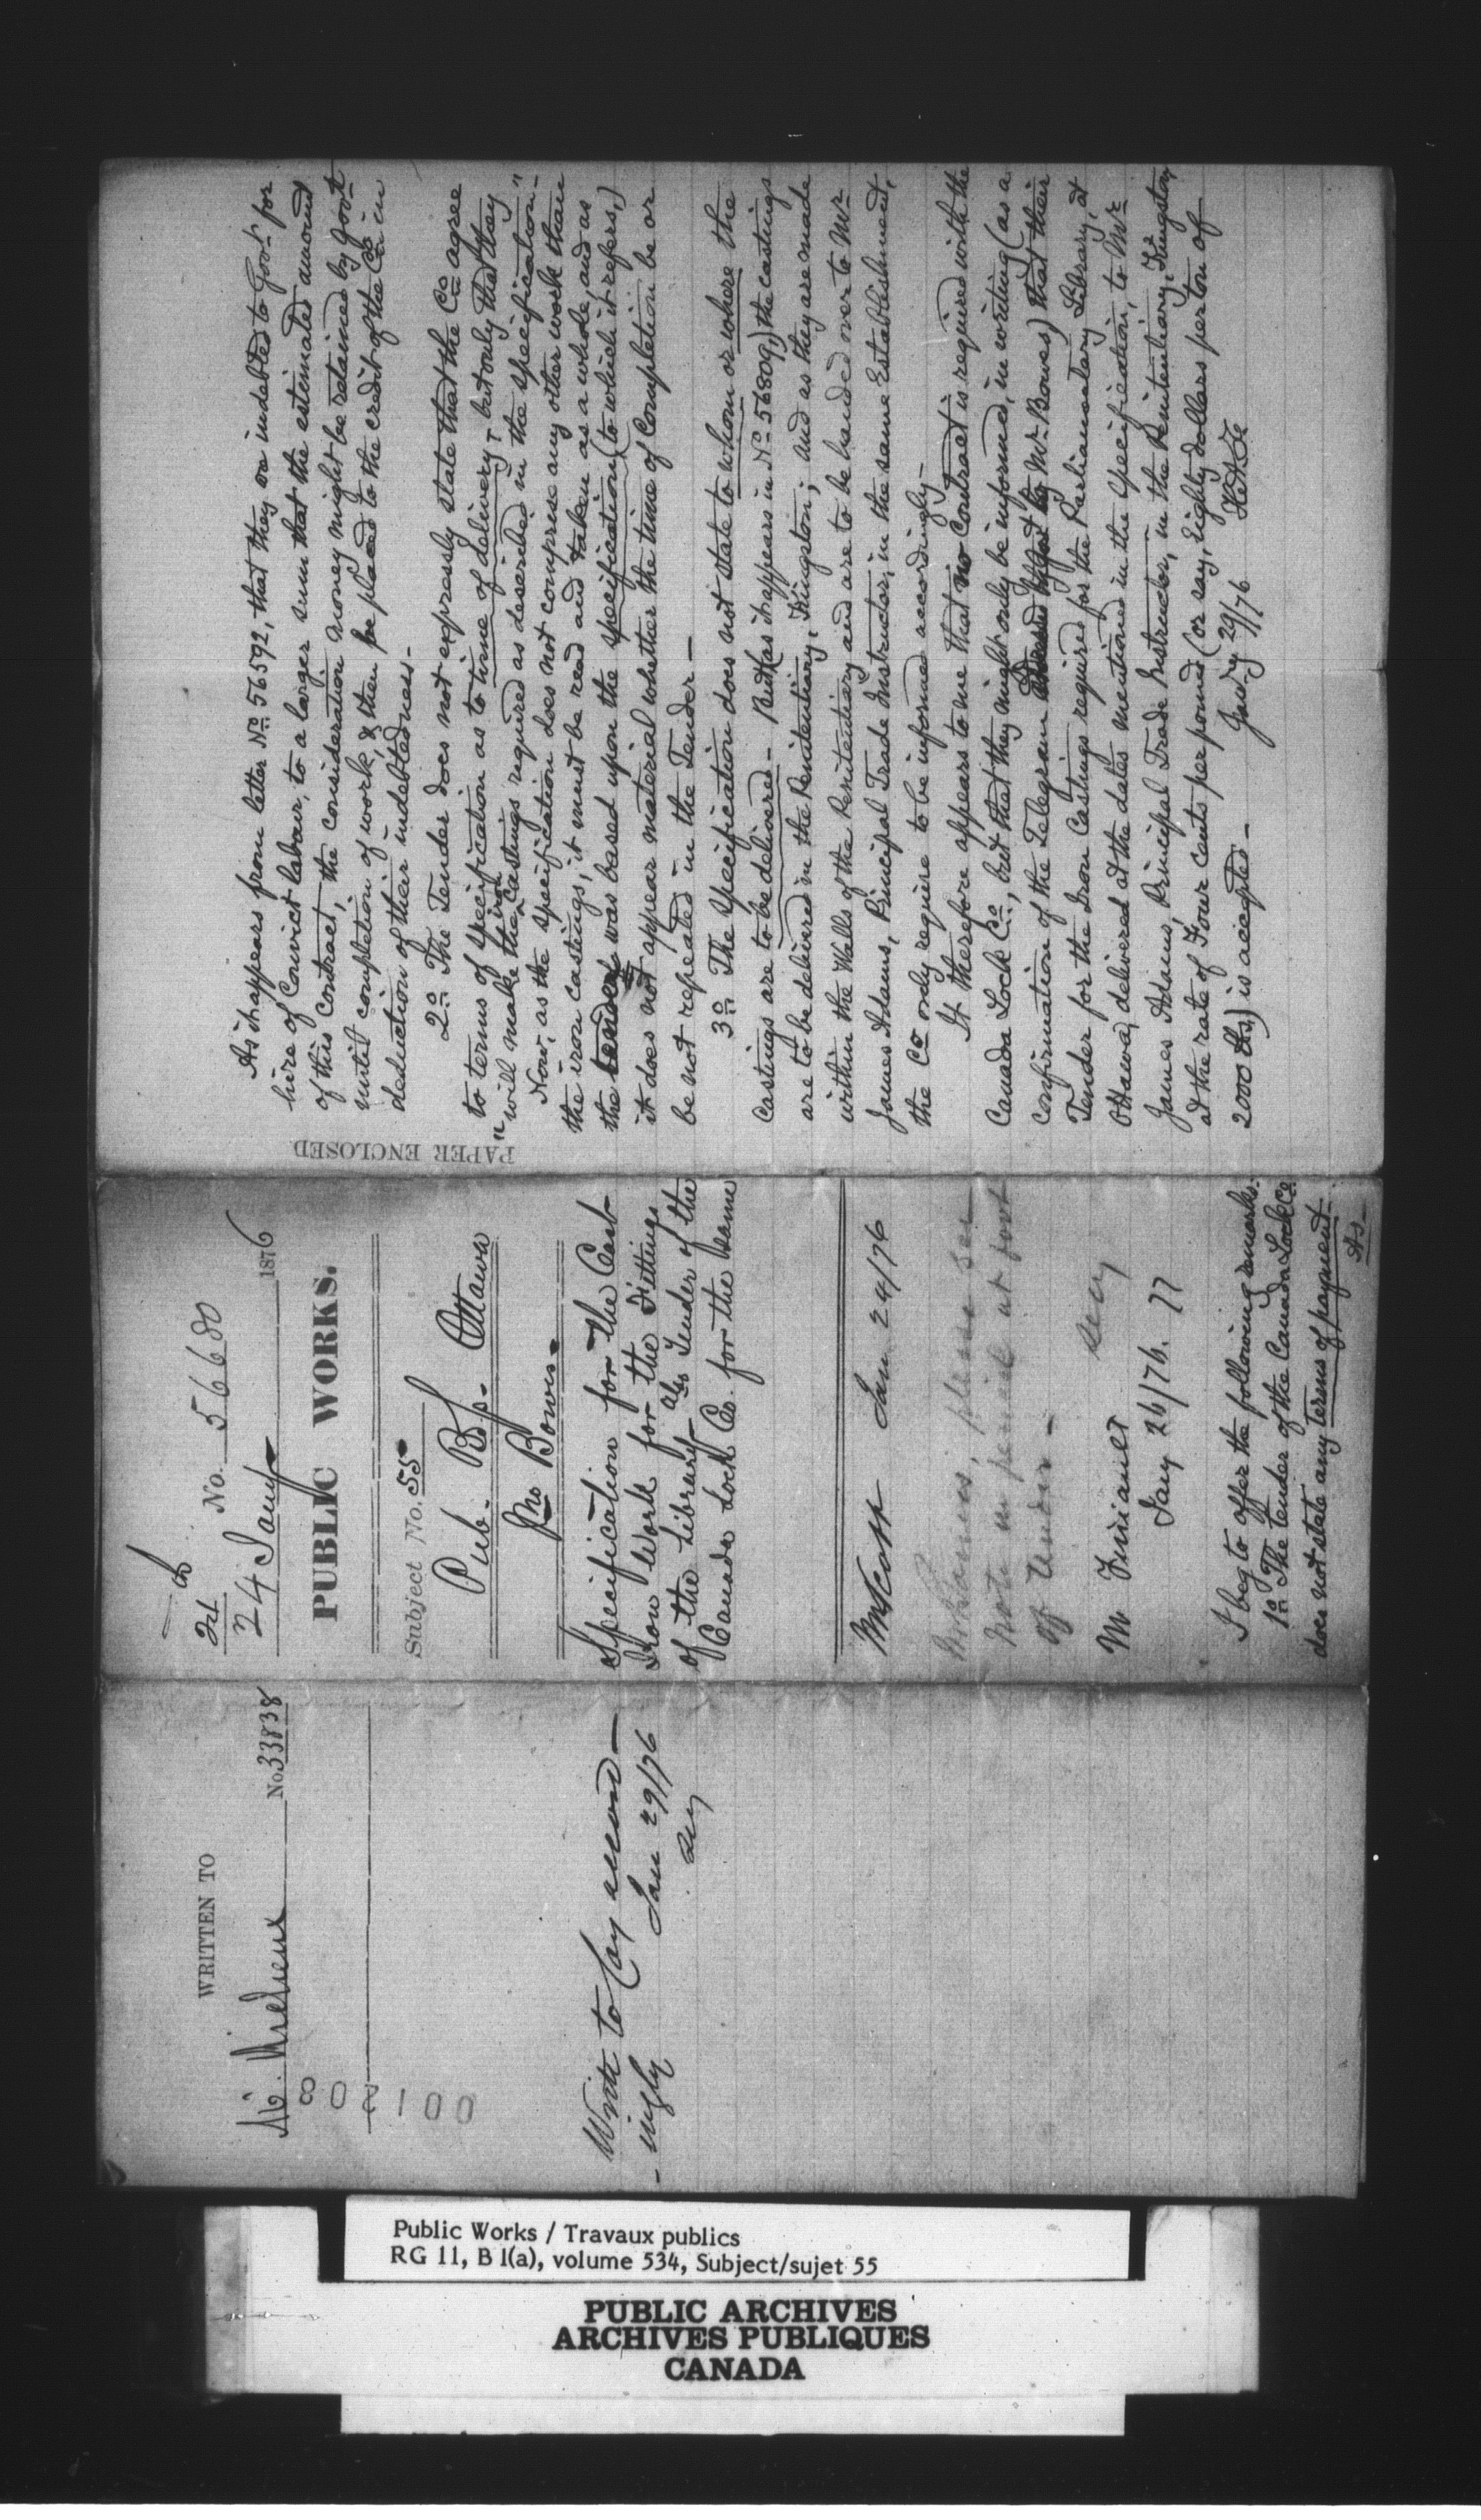 WRITTEN TO
No. 33838
001208
Write to Coy accord-
-ingly
Jan 29/76
Secy
24 Jany No. 56680
1876
PUBLIC WORKS.
Subject No. 55
Pub. Bgs. Ottawa
Jno Bowes
Specification for the Cast
Iron Work for the Fittings
of the Library - also Tender of the
Canada Lock Co. for the same
Mr Scott Jan 24/76
please see
note in pencil at foot
of Tender -
Secy
Jany 26/76.
I beg to offer the following remarks.
1o The tender of the Canada Lock Co.
does not state any terms of payment.
As
PAPER ENCLOSED
As it appears from letter No. 56592, that they are indebted to Govt. for
hire of Convict labour, to a larger sum that the estimated amount
of this Contract, the consideration money might be retained by Govt
until completion of work, & then be placed to the credit of the Co. in
deduction of their indebtedness.-
2o The Tender does not expressly state that the Co. agree
to terms of specification as to time of delivery, but only that they
"will make the iron Castings required as described in the specification."
Now, as the specification does not comprise any other work than
the iron castings, it must be read and taken as a whole, and as
the tender was based upon the specification (to which it refers,)
it does not appear material whether the time of Completion be or
be not repeated in the Tender-
3o The specification does not state to whom or where the
Castings are to be delivered - But (as it appears in No. 56809,) the castings
are to be delivered in the Penitentiary, Kingston; and as they are made
within the Walls of the Penitentiary and are to be handed over to Mr
James Adams, Principal Trade Instructor, in the same Establishment,
the Co only require to be informed accordingly-
It therefore appears to me that no Contract is required with the
Canada Lock Co., but that they might only be informed, in writing (as a
confirmation of the Telegram by Mr. Bowes) that their
Tender for the Iron Castings required for the Parliamentary Library, at
Ottawa, delivered at the dates mentioned in the specification, to Mr
James Adams, Principal Trade Instructor, in the Penitentiary, Kingston,
at the rate of Four Cents per pound (or say, Eighty dollars per ton of
2000 lbs,) is accepted-
Jany 29/76
Public Works / Travaux publics
RG 11, B 1(a), volume 534, Subject/sujet 55
PUBLIC ARCHIVES
ARCHIVES PUBLIQUES
CANADA